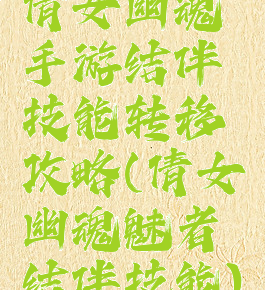 倩女幽魂
手游结伴
技能转移
攻略(倩女
幽魂魅者
结伴技能)